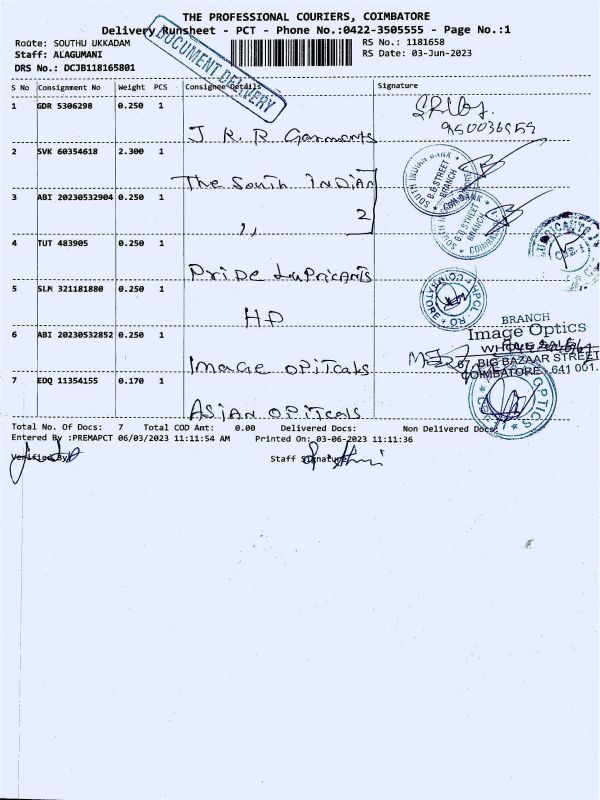 THE PROFESSIONAL COURIERS, COIMBATORE
Delivery Runsheet - PCT - Phone No.:0422-3505555 - Page No.:1
Route: SOUTHU UKKADAM
RS No.: 1181658
Staff: ALAGUMANI
RS Date: 03-Jun-2023
DRS No.: DCJB118165801
DOCUMENT DELIVERY
S No Consignment No Weight PCS Consignee Details Signature
1 GDR 5306298 0.250 1
J R. R Garments
2 SVK 60354618 2.300 1
The South INDIAN
SOUTH INDIAN BANK B.B.STREET BRANCH
3 ABI 20230532904 0.250 1
,, 2
B.B.STREET BRANCH
4 TUT 483905 0.250 1
PriDe LuPricants
5 SLM 321181880 0.250 1
HP
HPCL. RO. COIMBATORE
6 ABI 20230532852 0.250 1
Image OPITcals
BRANCH
Image Optics
BIG BAZAAR STREET
COIMBATORE - 641 001.
7 EDQ 11354155 0.170 1
ASIAN OPITcals
OPTICS
Total No. Of Docs: 7 Total COD Amt: 0.00 Delivered Docs: Non Delivered Docs:
Entered By :PREMAPCT 06/03/2023 11:11:54 AM Printed On: 03-06-2023 11:11:36
Verified By
Staff Signature